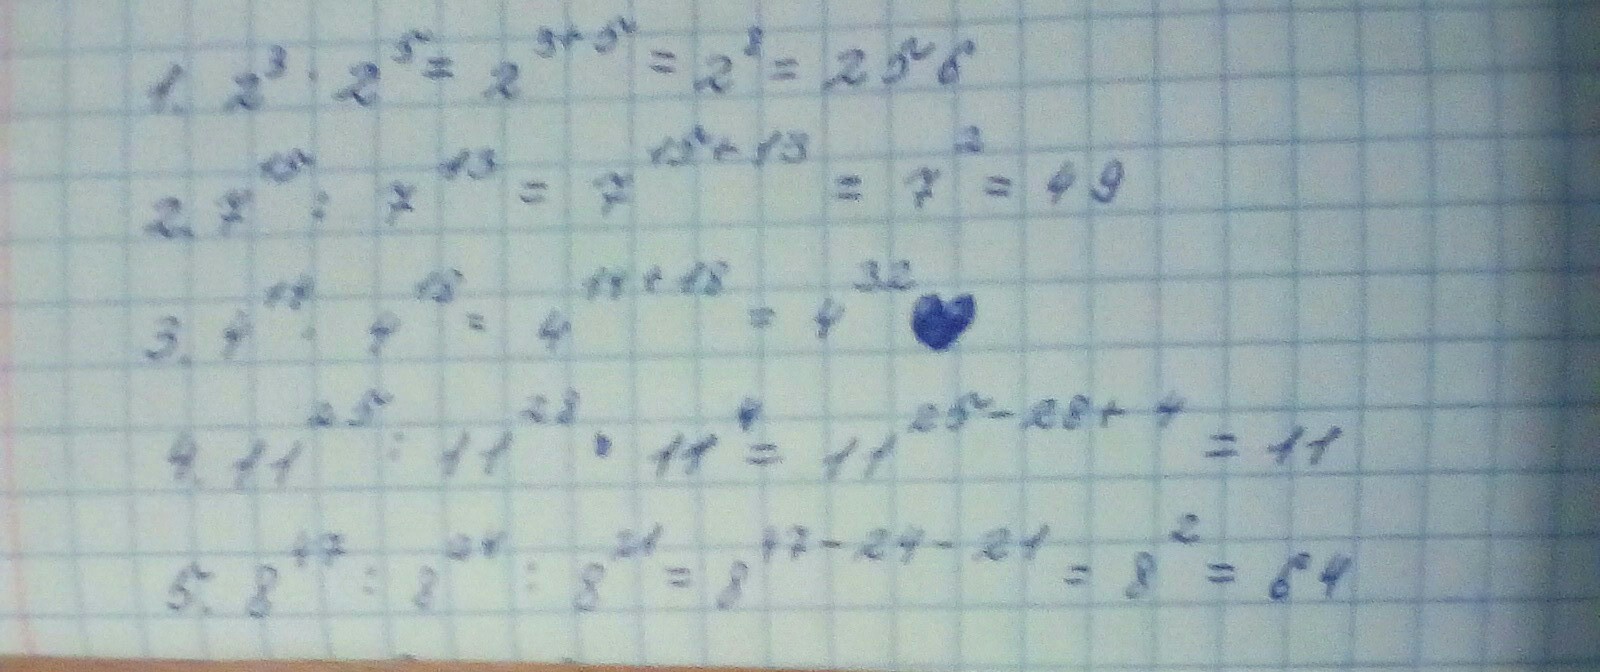 1. 2³ · 2⁵ = 2³⁺⁵ = 2⁸ = 256
2. 7¹⁵ : 7¹³ = 7¹⁵⁺¹³ = 7² = 49
3. 4¹⁴ · 4¹⁸ = 4¹⁴⁺¹⁸ = 4³²
4. 11²⁵ : 11²⁸ · 11⁴ = 11²⁵⁻²⁸⁺⁴ = 11
5. 8⁴⁷ : 8²⁴ : 8²¹ = 8⁴⁷⁻²⁴⁻²¹ = 8² = 64